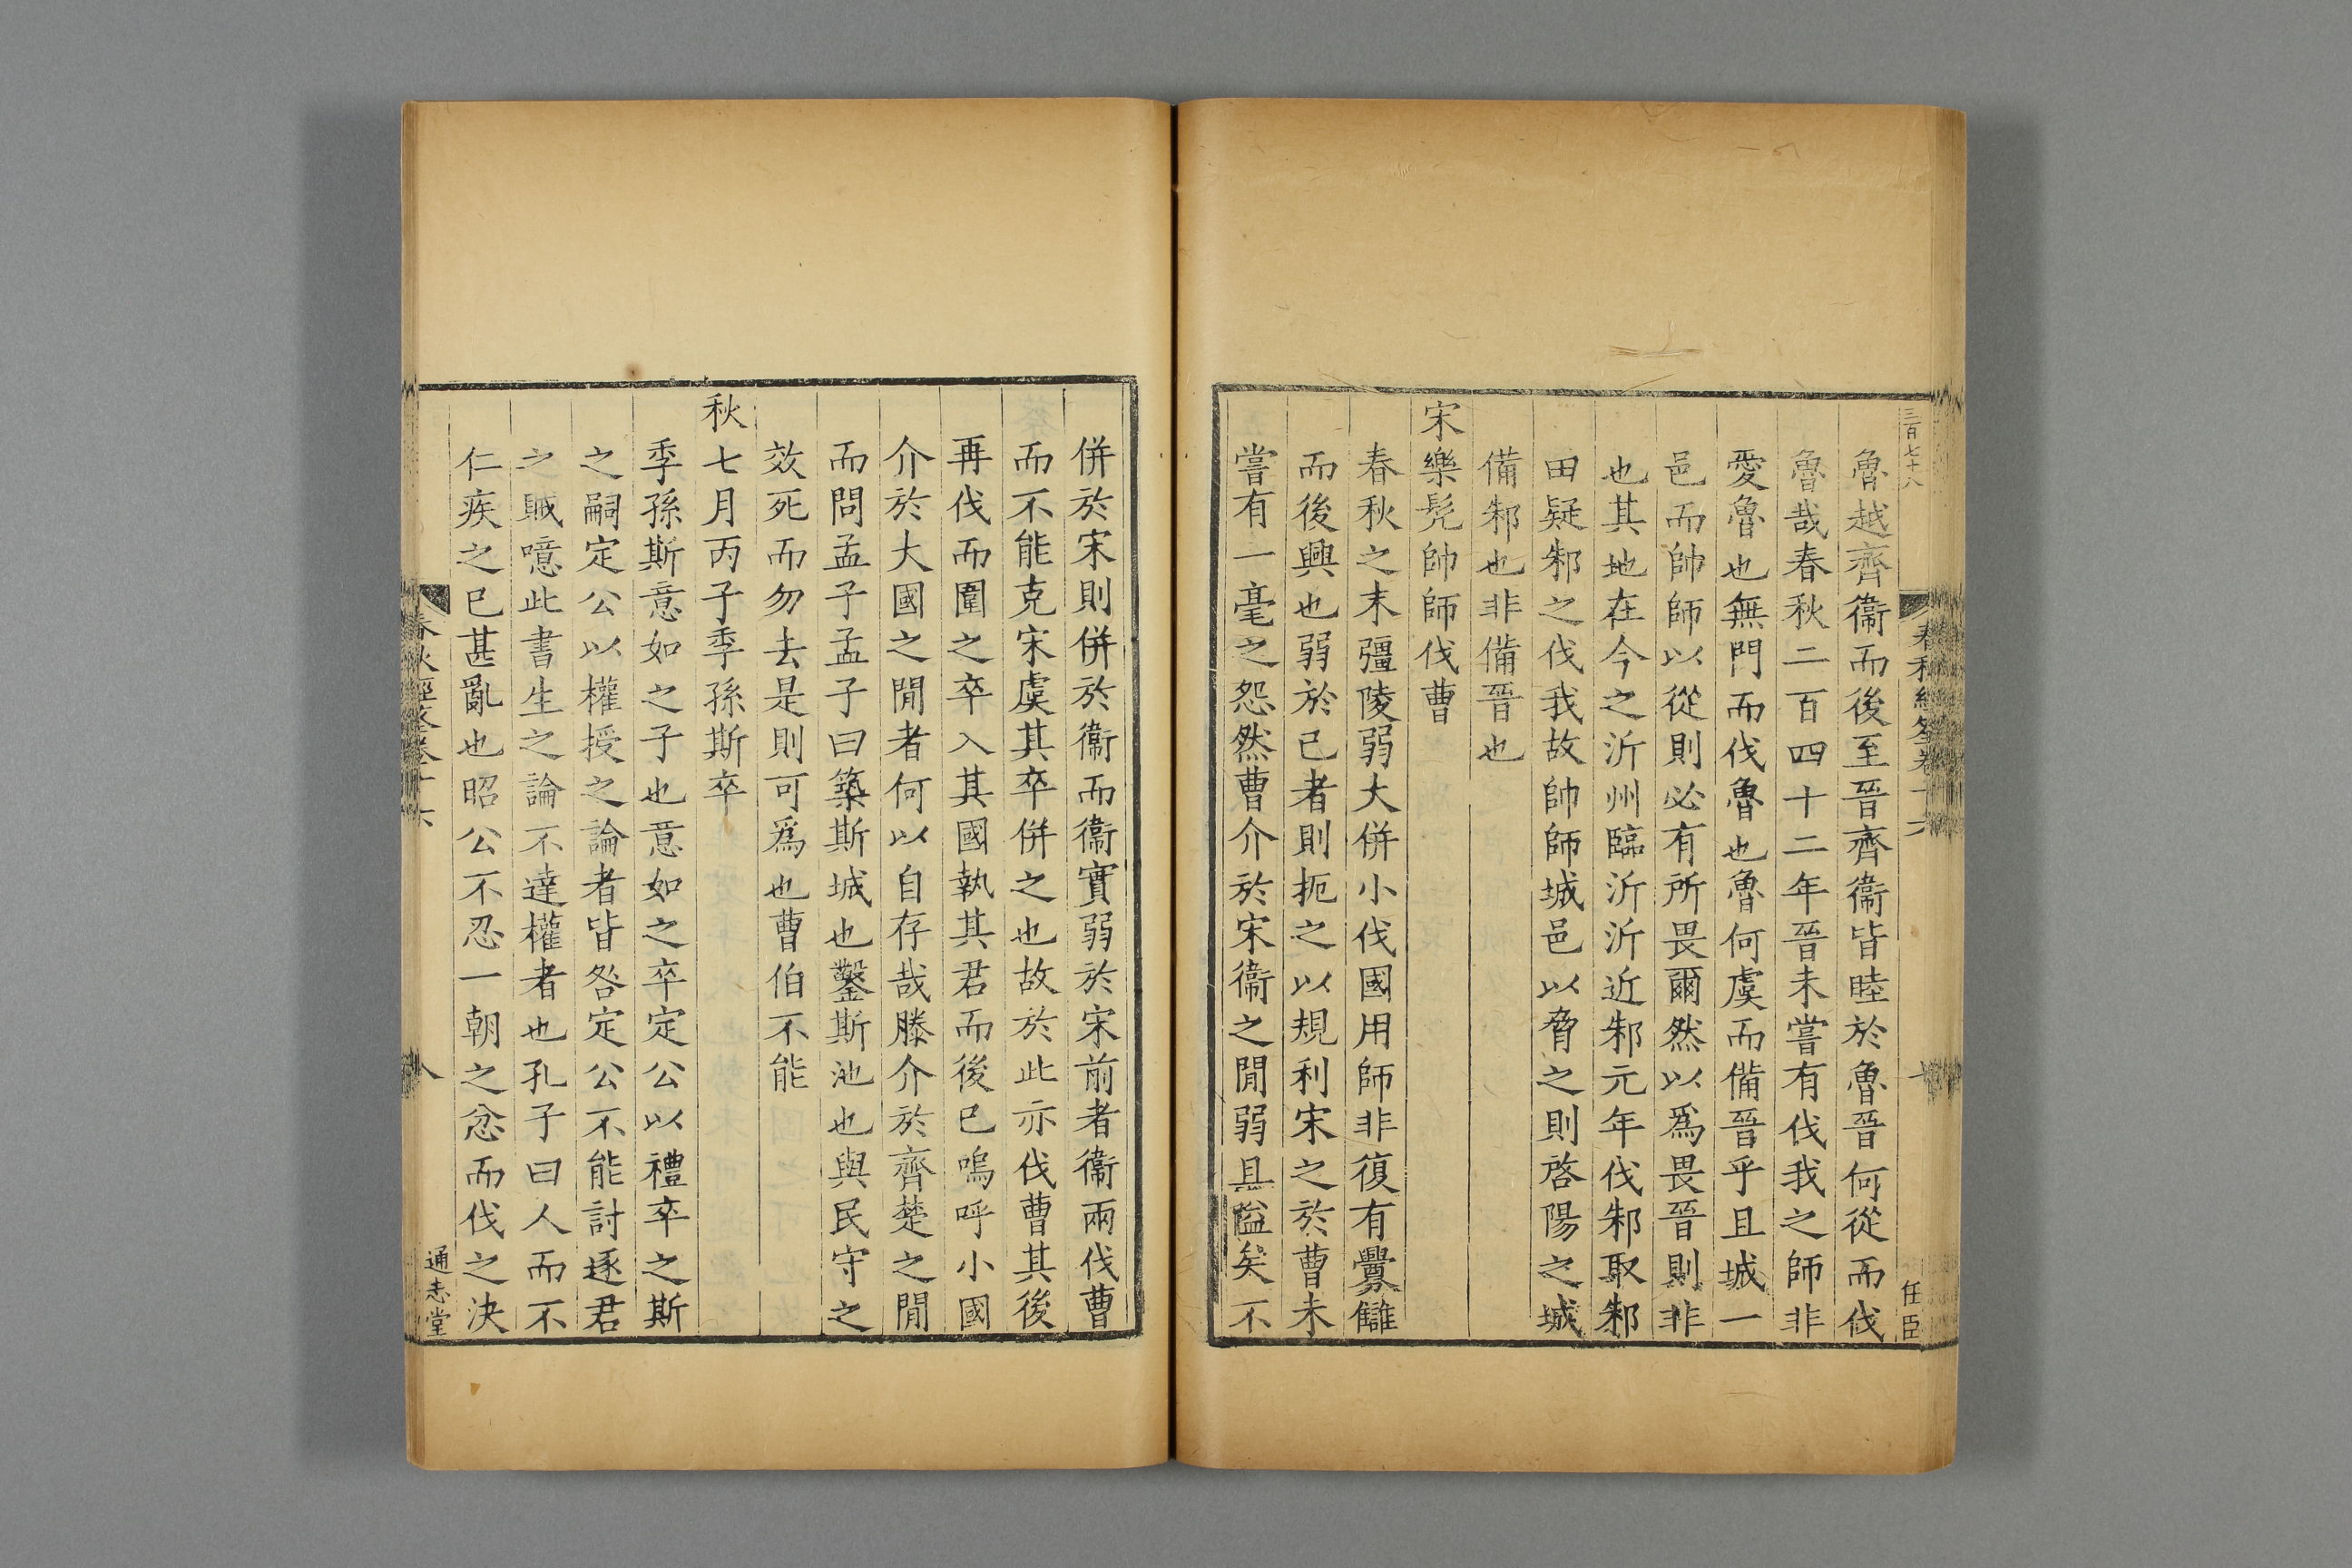 三百七十八
魯越齊衞而後至晉齊衞皆睦於魯晉何從而伐
魯哉春秋二百四十二年晉未嘗有伐我之師非
愛魯也無門而伐魯也魯何虞而備晉乎且城一
邑而帥師以從則必有所畏爾然以爲畏晉則非
也其地在今之沂州臨沂沂近邾元年伐邾取邾
田疑邾之伐我故帥師城邑以脅之則啓陽之城
備邾也非備晉也
宋樂髡帥師伐曹
春秋之末彊陵弱大併小伐國用師非復有釁讎
而後興也弱於已者則扼之以規利宋之於曹未
嘗有一毫之怨然曹介於宋衞之閒弱且隘矣不
任臣
併於宋則併於衞而衞實弱於宋前者衞兩伐曹
而不能克宋虞其卒併之也故於此亦伐曹其後
再伐而圍之卒入其國執其君而後已嗚呼小國
介於大國之閒者何以自存哉滕介於齊楚之閒
而問孟子孟子曰築斯城也鑿斯池也與民守之
效死而勿去是則可爲也曹伯不能
秋七月丙子季孫斯卒
季孫斯意如之子也意如之卒定公以禮卒之斯
之嗣定公以權授之論者皆咎定公不能討逐君
之賊噫此書生之論不達權者也孔子曰人而不
仁疾之已甚亂也昭公不忍一朝之忿而伐之決
春秋經筌卷十六
八
通志堂